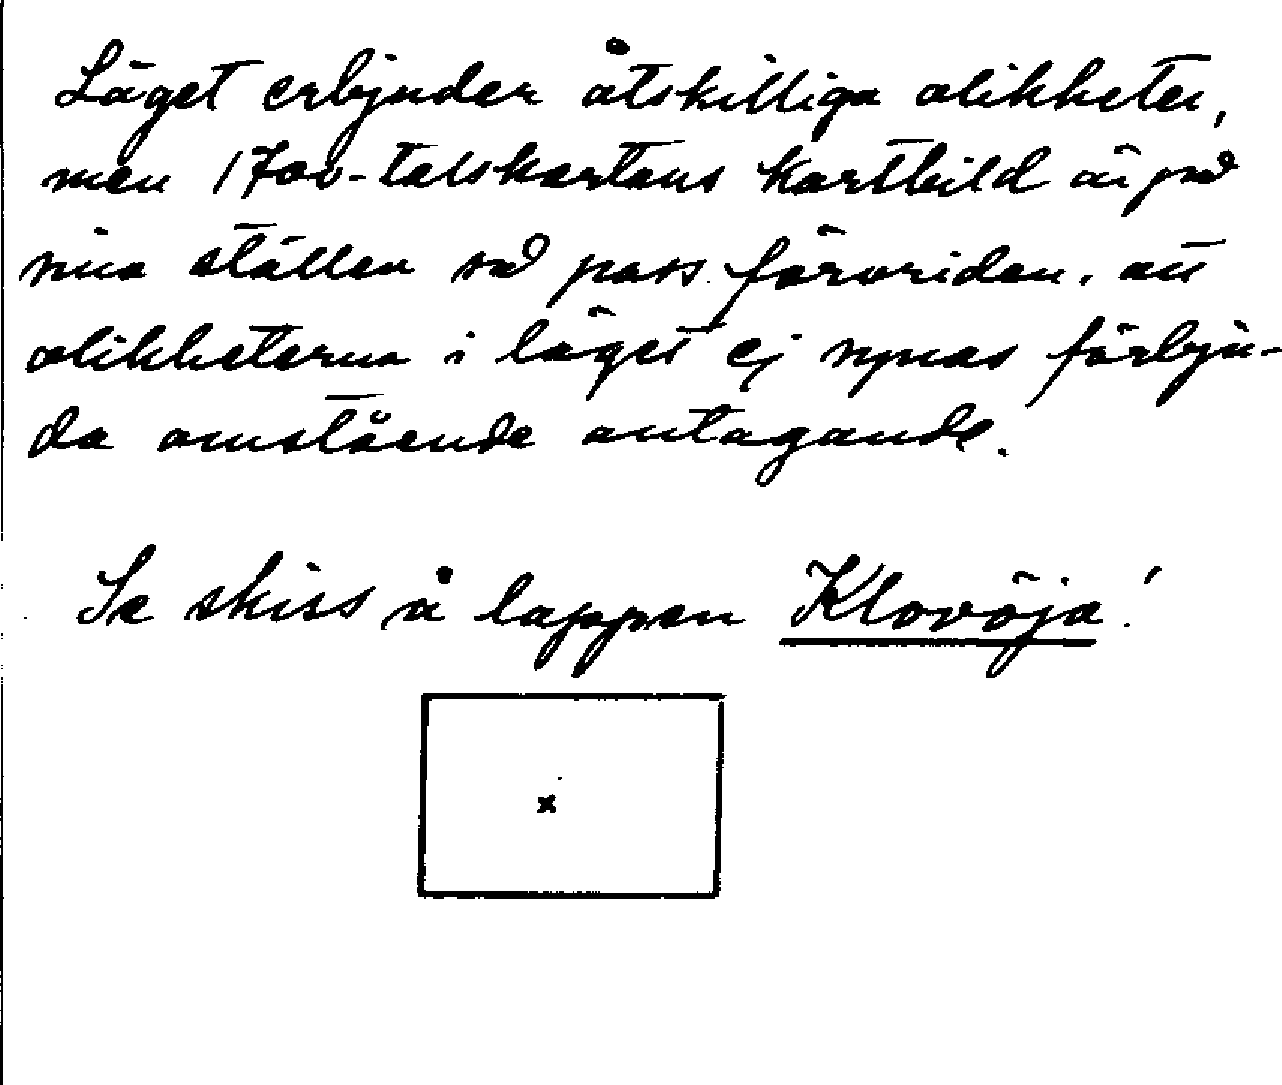 Läget erbjuder åtskilliga olikheter,
men 1700-talskartans kartbild är på
sina ställen så pass förvriden, att
olikheterna i läget ej synas förbju-
da omstående antagande.
Se skiss å lappen Klovöja!
x